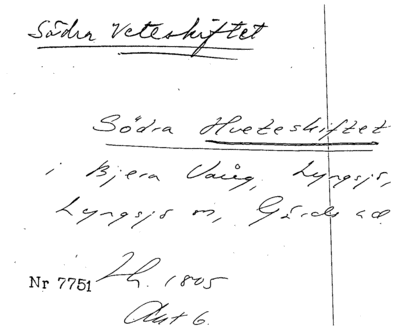 Södra Veteskiftet
Södra Hveteskiftet
i Bjera Vång, Lyngsjö,
Lyngsjö sn, Gärds hd.
Nr 7751 Lh. 1805
Akt 6.